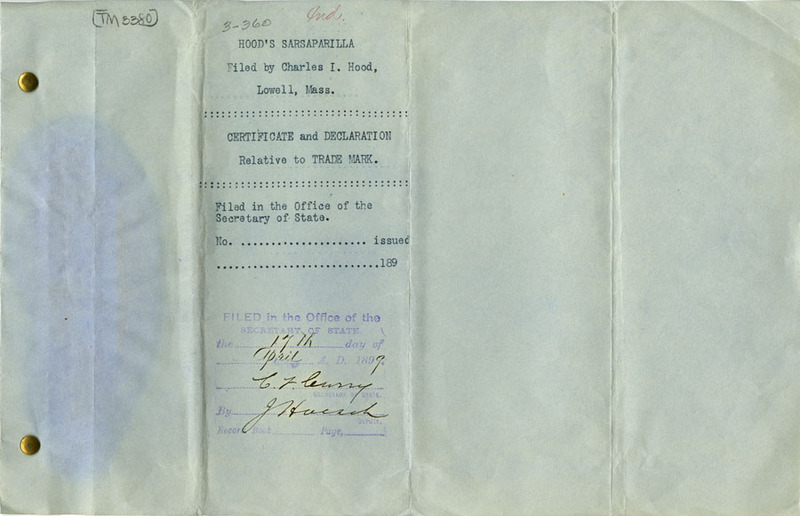 TM 3380
3-360
Ind.
HOOD'S SARSAPARILLA
Filed by Charles I. Hood,
Lowell, Mass.
CERTIFICATE and DECLARATION
Relative to TRADE MARK.
Filed in the Office of the
Secretary of State.
No. ..................... issued
..........................189
FILED in the Office of the
SECRETARY OF STATE
the 17th day of
April A. D. 1899.
C. F. Curry
SECRETARY OF STATE.
By J Hoesch
Deputy.
Record Book Page,